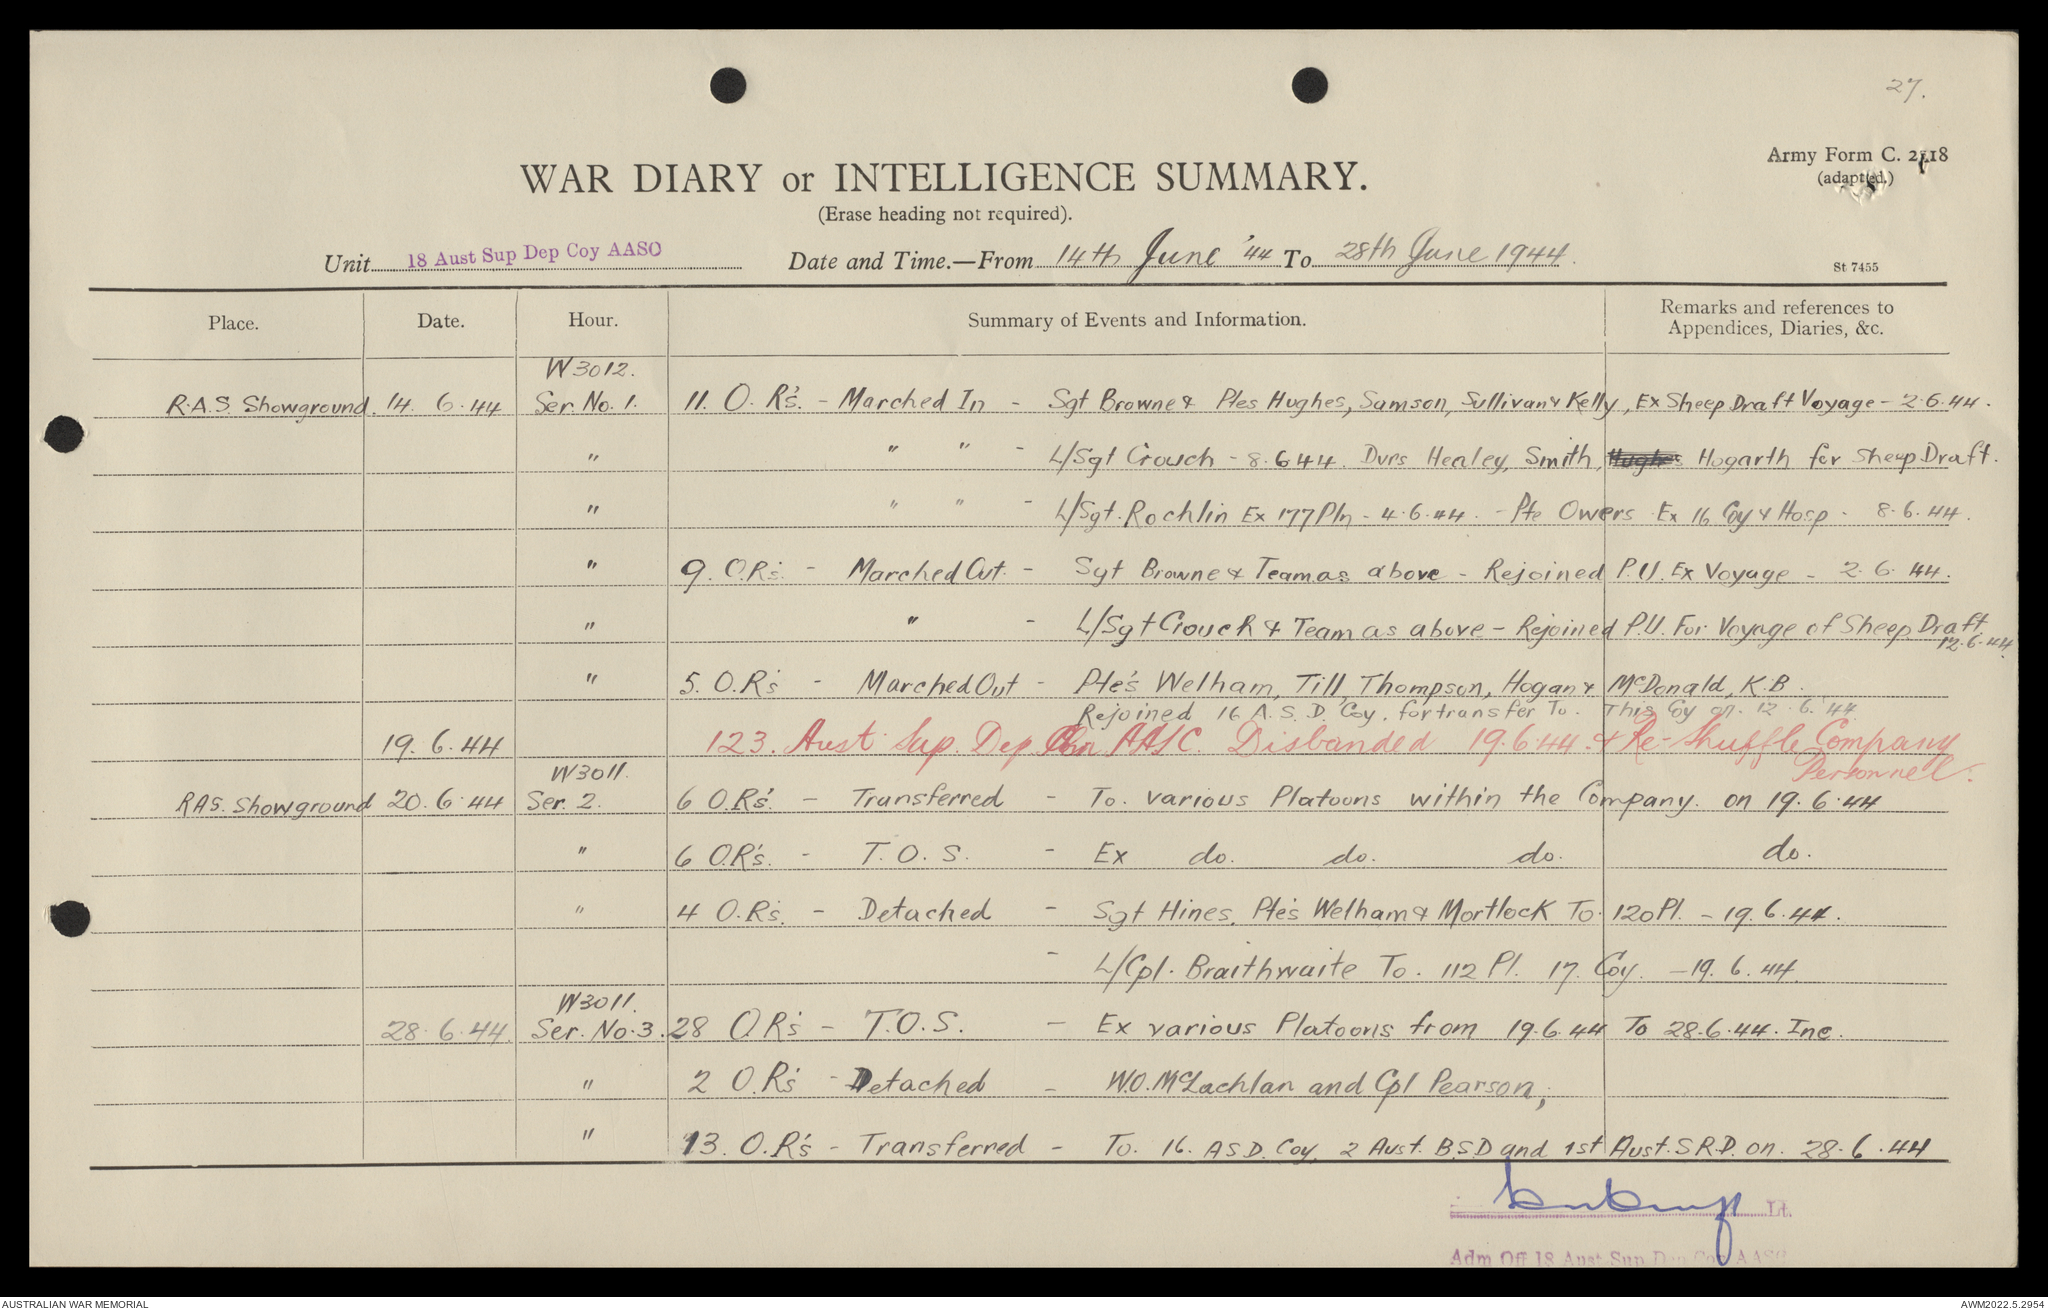 27.
Army Form C. 2118
(adapted.)
WAR DIARY or INTELLIGENCE SUMMARY.
(Erase heading not required).
Unit 18 Aust Sup Dep Coy AASC Date and Time.—From 14th June '44 To 28th June 1944.
St 7455
Place. Date. Hour. Summary of Events and Information. Remarks and references to
Appendices, Diaries, &c.
W3012.
R.A.S. Showground. 14. 6. 44 Ser. No. 1. 11. O. R's. - Marched In - Sgt Browne & Ptes Hughes, Samson, Sullivan & Kelly, Ex Sheep Draft Voyage - 2.6.44.
" " " - L/Sgt Crouch - 8.6.44. Dvrs Healey, Smith, Hughes Hogarth for Sheep Draft.
" " " - L/Sgt. Rochlin Ex 177 Pln - 4.6.44. - Pte Owers Ex 16 Coy & Hosp - 8.6.44.
" 9. O.R's - Marched Out. - Sgt Browne & Team as above - Rejoined P.U. Ex Voyage - 2.6.44.
" " - L/Sgt Crouch & Team as above - Rejoined P.U. For Voyage of Sheep Draft
12.6.44.
" 5. O.R's - Marched Out - Pte's Welham, Till, Thompson, Hogan & McDonald, K.B.
Rejoined 16 A.S.D. Coy. for transfer To. This Coy on. 12.6.44
19.6.44 123. Aust Sup. Dep. Pln AASC. Disbanded 19.6.44. & Re-Shuffle Company
Personnel.
W3011.
RAS. Showground 20.6.44 Ser. 2. 6 O.R's. - Transferred - To. various Platoons within the Company. on 19.6.44
" 6 O.R's. - T.O.S. - Ex do. do. do. do.
" 4 O.R's. - Detached - Sgt Hines, Pte's Welham & Mortlock To. 120 Pl. - 19.6.44.
- L/Cpl. Braithwaite To. 112 Pl. 17. Coy. - 19.6.44.
W3011.
28.6.44. Ser. No. 3. 28 O.R's - T.O.S. - Ex various Platoons from 19.6.44 To 28.6.44. Inc.
" 2 O.R's - Detached - W.O. McLachlan and Cpl Pearson,
" 13. O.R's - Transferred - To. 16. A.S.D. Coy, 2 Aust. B.S.D and 1st Aust. S.R.D. on. 28.6.44
Lt.
Adm Off 18 Aust Sup Dep Coy AASC
AUSTRALIAN WAR MEMORIAL AWM2022.5.2954